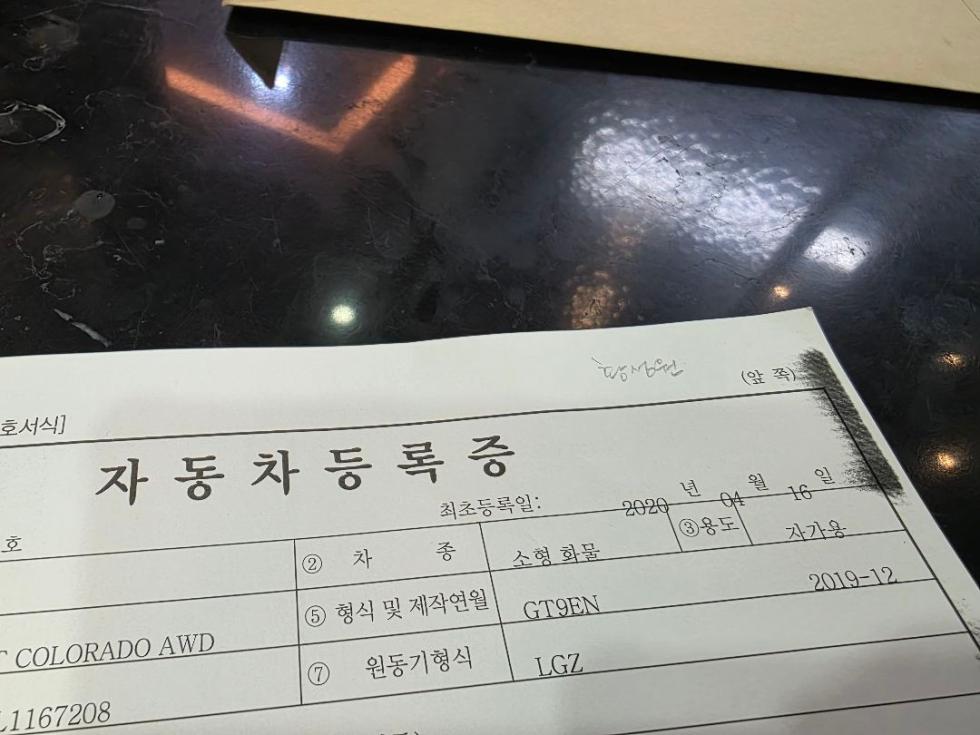 (앞 쪽)
호서식]
자동차등록증
최초등록일: 2020 년 04 월 16 일
호 ② 차 종 소형 화물 ③용도 자가용
⑤ 형식 및 제작연월 GT9EN 2019-12
COLORADO AWD ⑦ 원동기형식 LGZ
L1167208